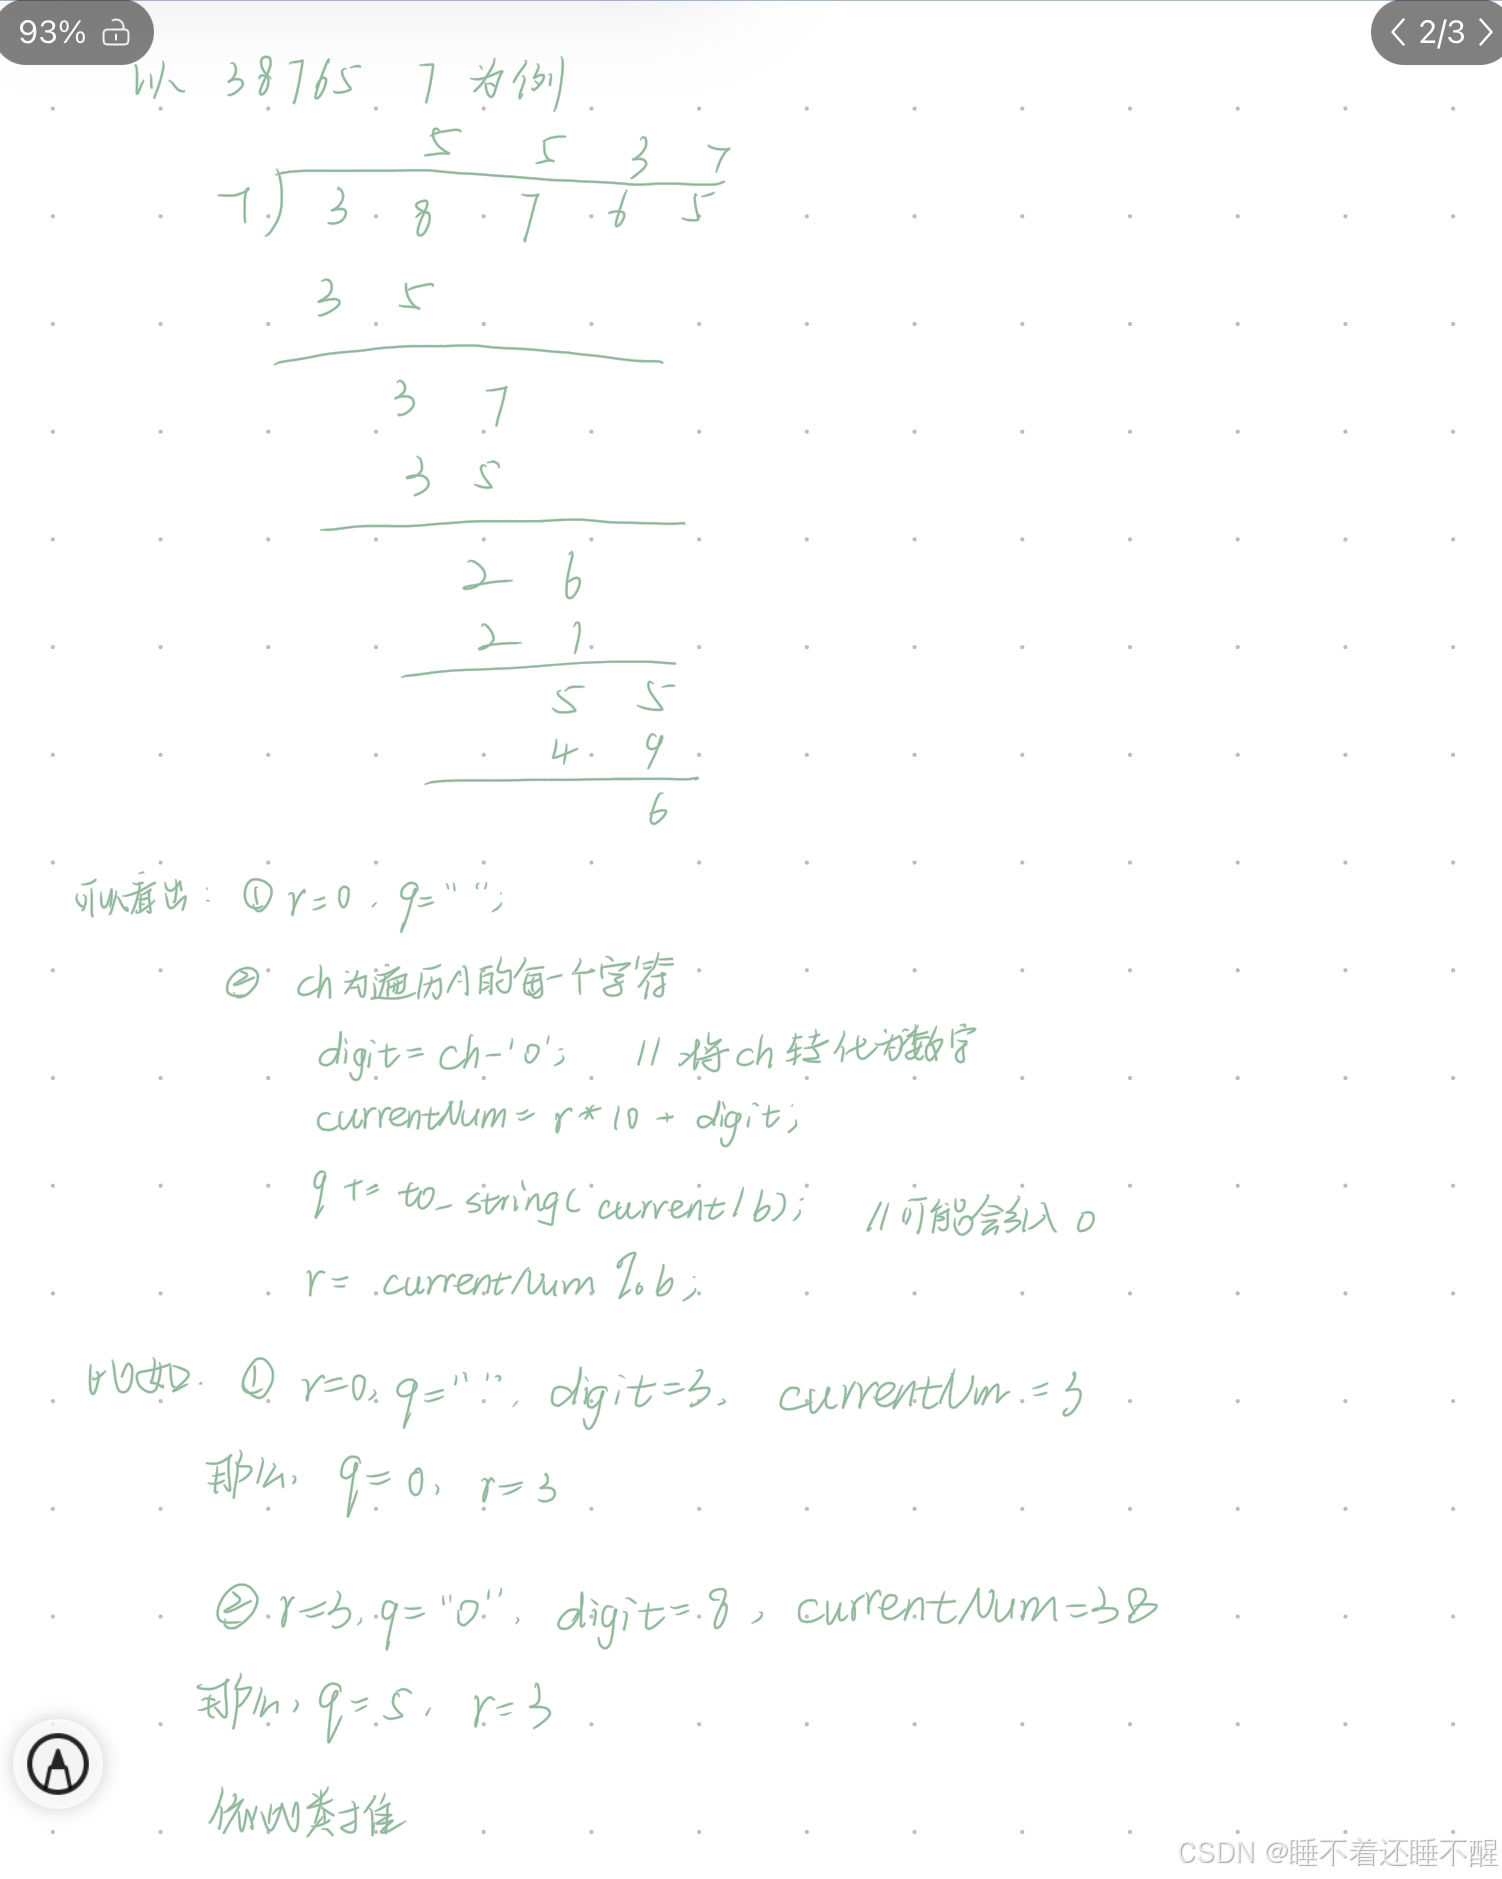 93%
2/3
以 38765 7 为例
5 5 3 7
7 3 8 7 6 5
3 5
3 7
3 5
2 6
2 1
5 5
4 9
6
可以看出: ① r=0, q="";
② ch为遍历A的每一个字符
digit= ch-'0'; // 将ch转化为数字
currentNum= r*10 + digit;
q += to_string(current/b); //可能会引入 0
r= currentNum %b;
比如. ① r=0, q="", digit=3, currentNum=3
那么, q=0, r=3
② r=3, q="0", digit=8, currentNum=38
那么, q=5, r=3
依次类推
CSDN @睡不着还睡不醒